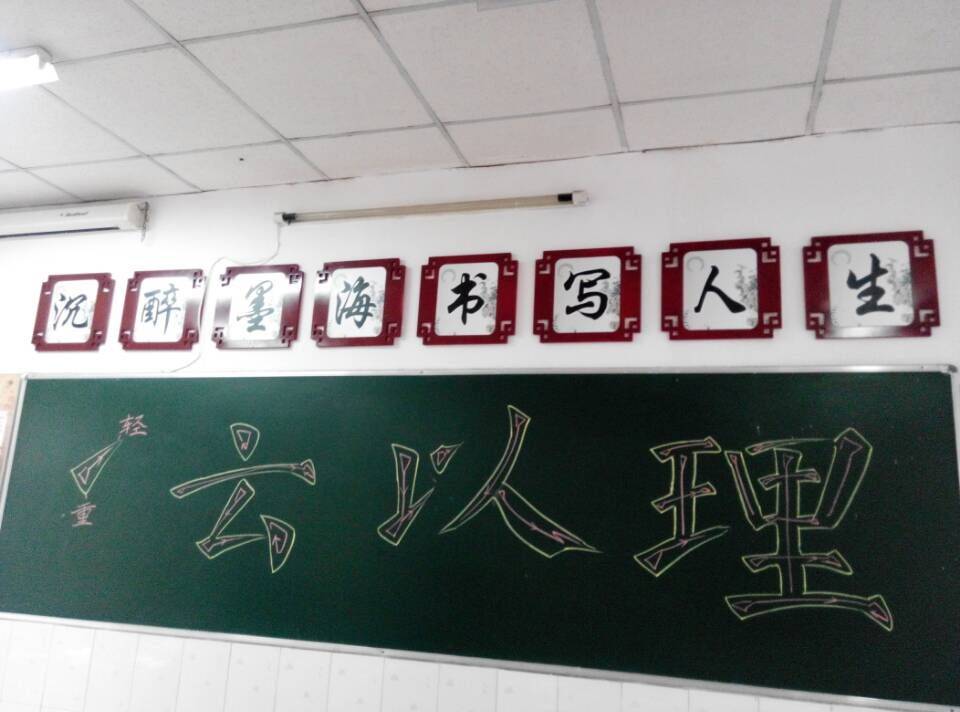 沉醉墨海书写人生
轻
重
𠫓以理